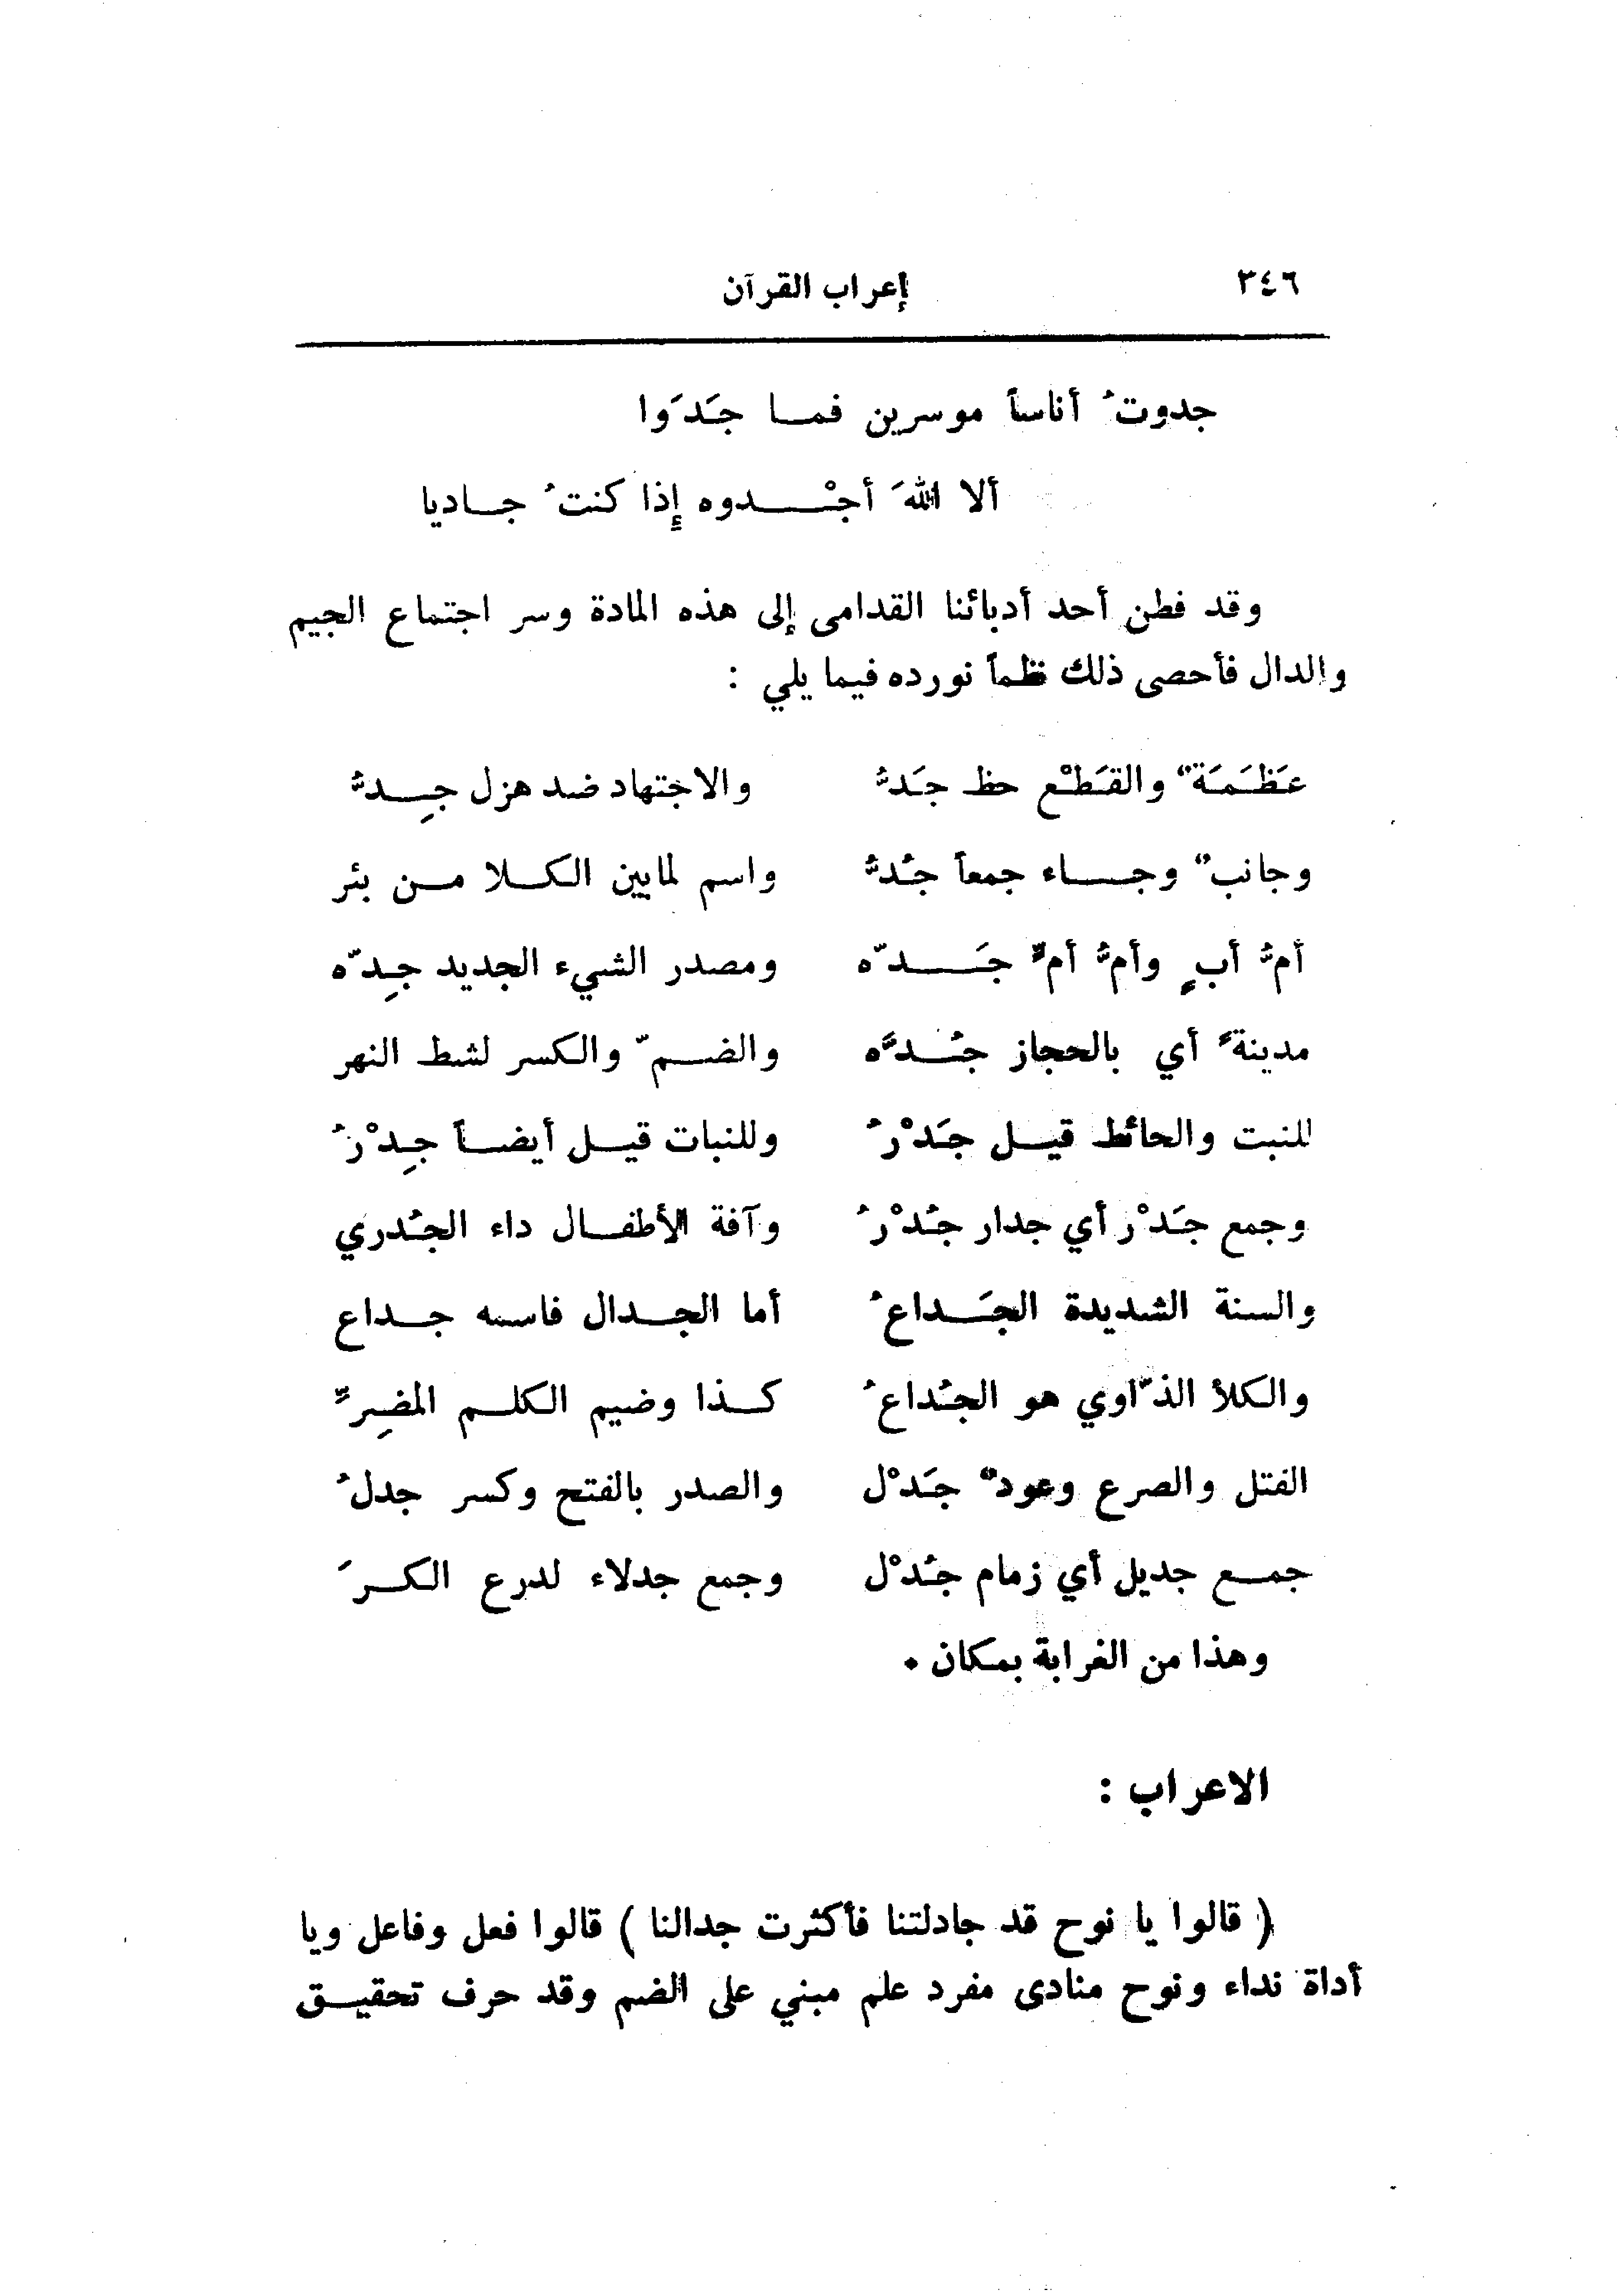 ٣٤٦ إعراب القرآن
جدوتُ أناساً موسرين فمـا جَدَوا
ألا اللهَ أجْـدوه إِذا كنتُ جـاديا
وقد فطن أحد أدبائنا القدامى إلى هذه المادة وسر اجتماع الجيم
والدال فأحصى ذلك نظماً نورده فيما يلي :
عَظَمَةٌ والقَطْع حظ جَدُّ والاجتهاد ضد هزل جِـدُّ
وجانبٌ وجـاء جمعاً جُدُّ واسم لمابين الكـلا مـن بئر
أمُّ أبٍ وأمُّ أمٍّ جَـدّه ومصدر الشيء الجديد جِدّه
مدينةٌ أي بالحجاز جُـدَّه والضـمّ والكسر لشط النهر
للنبت والحائط قيـل جَدْرُ وللنبات قيـل أيضـاً جِدْرُ
وجمع جَدْر أي جدار جُدْرُ وآفة الأطفـال داء الجُدري
والسنة الشديدة الجَـداعُ أما الجـدال فاسمه جـداع
والكلأ الذّاوي هو الجُداعُ كـذا وضيم الكلـم المضِرِّ
الفتل والصرع وعودٌ جَدْل والصدر بالفتح وكسر جدلُ
جمـع جديل أي زمام جُدْل وجمع جدلاء لدرع الكـرَ
وهذا من الغرابة بمكان ٠
الاعراب :
( قالوا يا نوح قد جادلتنا فأكثرت جدالنا ) قالوا فعل وفاعل ويا
أداة نداء ونوح منادى مفرد علم مبني على الضم وقد حرف تحقيـق